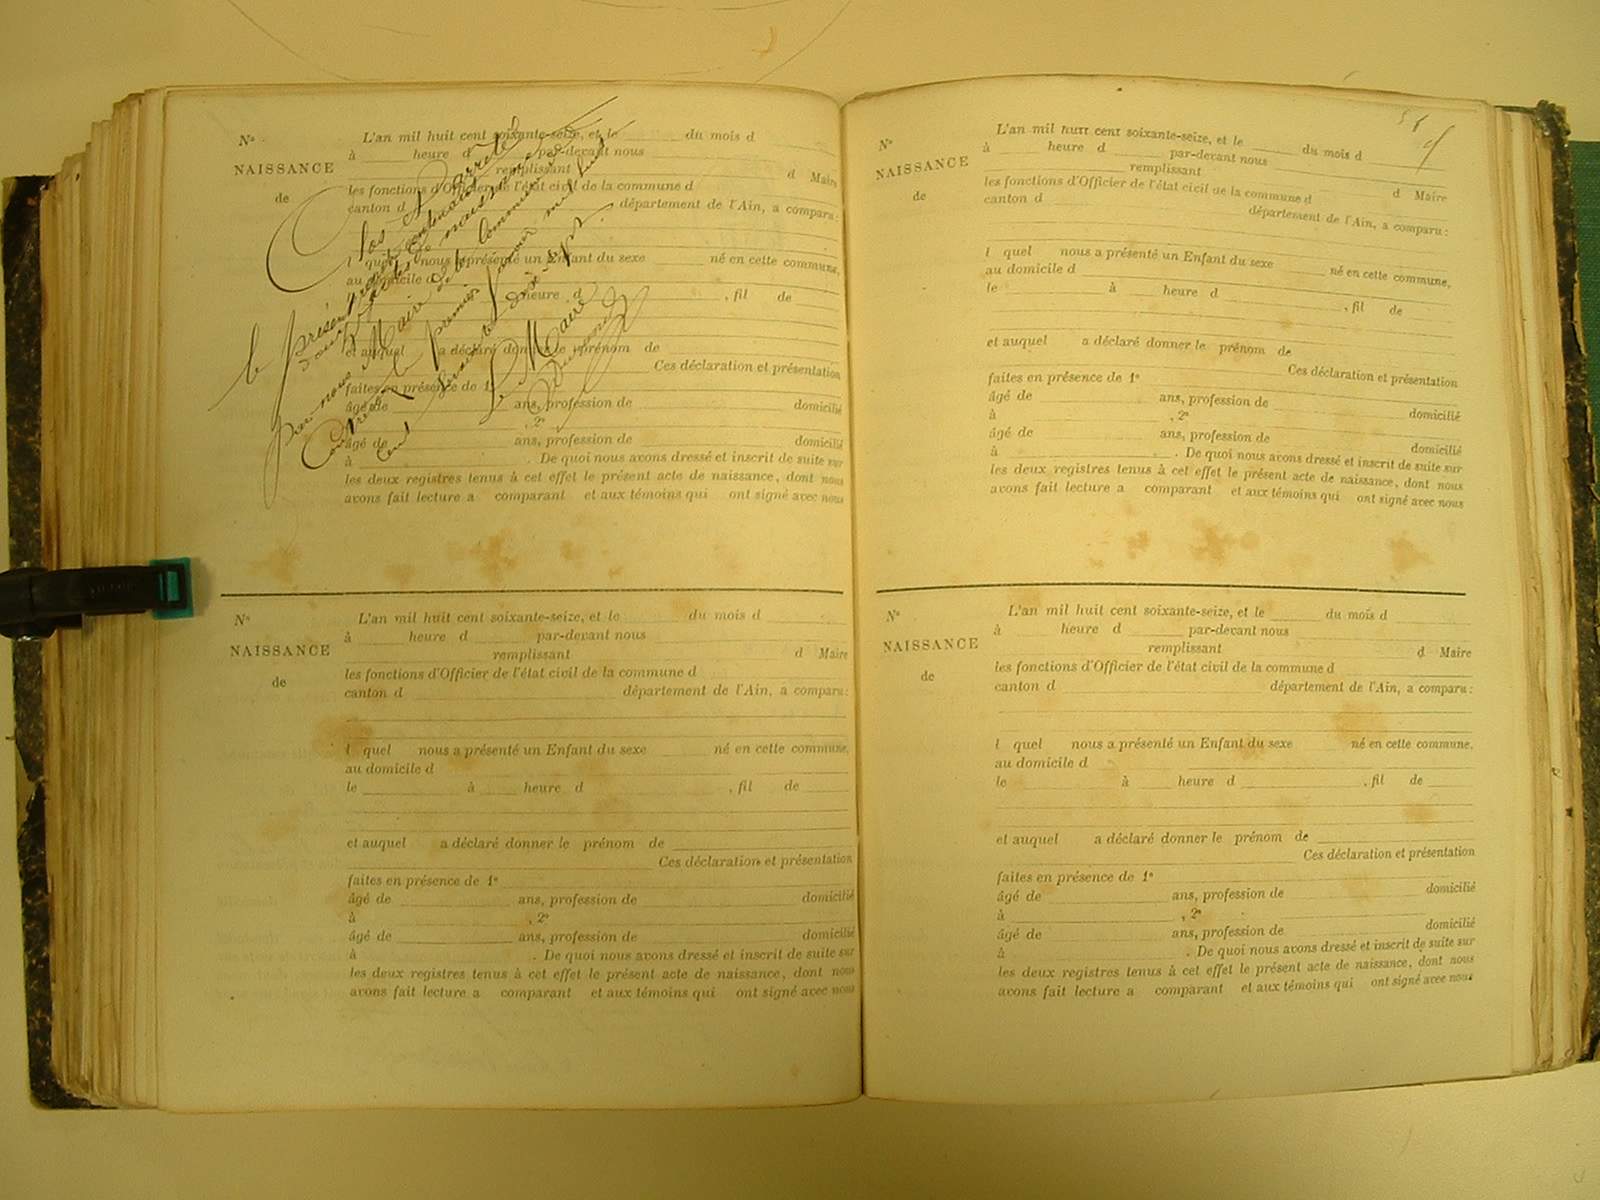 Nº
NAISSANCE
de
L'an mil huit cent soixante-seize, et le du mois d
à heure d par-devant nous
remplissant d Maire
les fonctions d'Officier de l'état civil de la commune d
canton d département de l'Ain, a comparu:
l quel nous a présenté un Enfant du sexe né en cette commune,
au domicile d
heure d , fil de
et auquel a déclaré donner le prénom de
Ces déclaration et présentation
faites en présence de 1º
âgé de ans, profession de domicilié
, 2º
âgé de ans, profession de domicilié
à . De quoi nous avons dressé et inscrit de suite sur
les deux registres tenus à cet effet le présent acte de naissance, dont nous
avons fait lecture a comparant et aux témoins qui ont signé avec nous
Clos et arrêté
le présent
actes de naissance
par nous Maire de la Commune de
le premier Janvier mil huit
cent soixante dix-sept.
Le Maire
Nº
NAISSANCE
de
L'an mil huit cent soixante-seize, et le du mois d
à heure d par-devant nous
remplissant d Maire
les fonctions d'Officier de l'état civil de la commune d
canton d département de l'Ain, a comparu:
l quel nous a présenté un Enfant du sexe né en cette commune,
au domicile d
le à heure d , fil de
et auquel a déclaré donner le prénom de
Ces déclaration et présentation
faites en présence de 1º
âgé de ans, profession de domicilié
à , 2º
âgé de ans, profession de domicilié
à . De quoi nous avons dressé et inscrit de suite sur
les deux registres tenus à cet effet le présent acte de naissance, dont nous
avons fait lecture a comparant et aux témoins qui ont signé avec nous
Nº
NAISSANCE
de
L'an mil huit cent soixante-seize, et le du mois d
à heure d par-devant nous
remplissant d Maire
les fonctions d'Officier de l'état civil de la commune d
canton d département de l'Ain, a comparu:
l quel nous a présenté un Enfant du sexe né en cette commune,
au domicile d
le à heure d , fil de
et auquel a déclaré donner le prénom de
Ces déclaration et présentation
faites en présence de 1º
âgé de ans, profession de domicilié
à , 2º
âgé de ans, profession de domicilié
à . De quoi nous avons dressé et inscrit de suite sur
les deux registres tenus à cet effet le présent acte de naissance, dont nous
avons fait lecture a comparant et aux témoins qui ont signé avec nous
Nº
NAISSANCE
de
L'an mil huit cent soixante-seize, et le du mois d
à heure d par-devant nous
remplissant d Maire
les fonctions d'Officier de l'état civil de la commune d
canton d département de l'Ain, a comparu:
l quel nous a présenté un Enfant du sexe né en cette commune,
au domicile d
le à heure d , fil de
et auquel a déclaré donner le prénom de
Ces déclaration et présentation
faites en présence de 1º
âgé de ans, profession de domicilié
à , 2º
âgé de ans, profession de domicilié
à . De quoi nous avons dressé et inscrit de suite sur
les deux registres tenus à cet effet le présent acte de naissance, dont nous
avons fait lecture a comparant et aux témoins qui ont signé avec nous